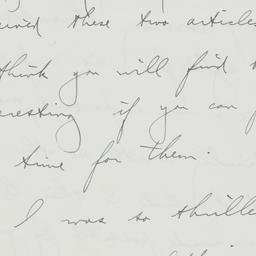 these two articles
think you will find
if you can
time for them.
I was so thrille